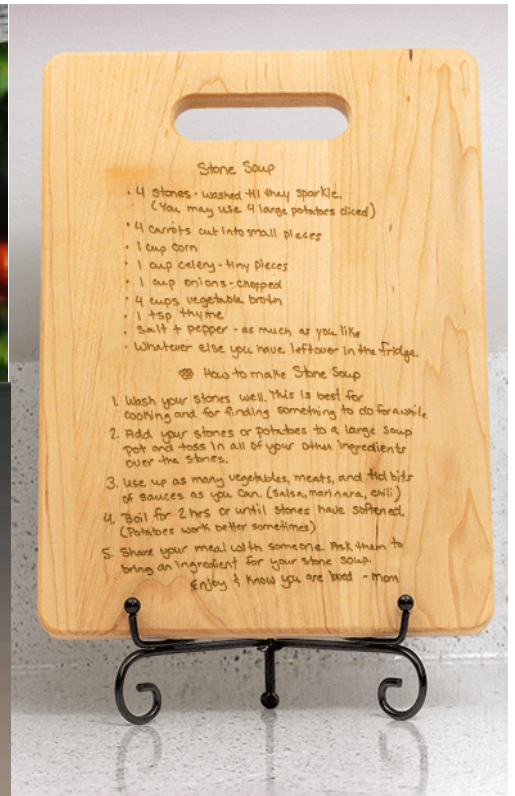 Stone Soup
• 4 stones - washed til they sparkle.
(You may use 4 large potatoes diced)
• 4 carrots cut into small pieces
• 1 cup corn
• 1 cup celery - tiny pieces
• 1 cup onions - chopped
• 4 cups vegetable broth
• 1 tsp thyme
• salt + pepper - as much as you like
• Whatever else you have leftover in the fridge.
How to make Stone Soup
1. Wash your stones well. This is best for
cooking and for finding something to do for awhile.
2. Add your stones or potatoes to a large soup
pot and toss in all of your other ingredients
over the stones.
3. Use up as many vegetables, meats, and tid bits
of sauces as you can. (salsa, marinara, chili)
4. Boil for 2 hrs or until stones have softened.
(Potatoes work better sometimes)
5. Share your meal with someone. Ask them to
bring an ingredient for your stone soup.
Enjoy & know you are loved - mom